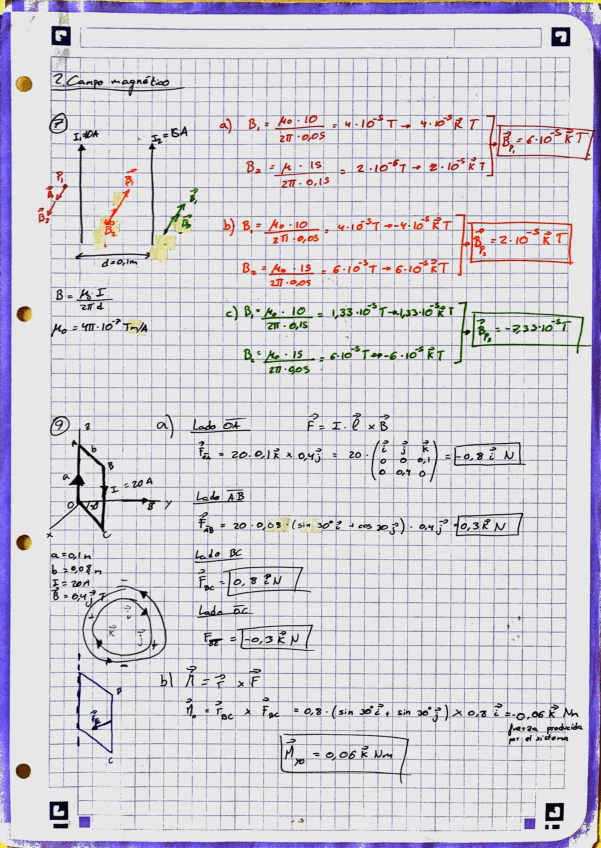 2. Campo magnético
7
I₁=10A I₂=15A
P₁
B₁
B₂
B₁
B₂
B₁
B₂
d=0,1m
B = μ₀·I / 2πd
μ₀ = 4π·10⁻⁷ Tm/A
a) B₁ = μ₀·10 / 2π·0,05 = 4·10⁻⁵ T → 4·10⁻⁵ k T
B₂ = μ·15 / 2π·0,15 = 2·10⁻⁵ T → 2·10⁻⁵ k T
B_P₁ = 6·10⁻⁵ k T
b) B₁ = μ₀·10 / 2π·0,05 = 4·10⁻⁵ T → -4·10⁻⁵ k T
B₂ = μ₀·15 / 2π·0,05 = 6·10⁻⁵ T → 6·10⁻⁵ k T
B_P₂ = 2·10⁻⁵ k T
c) B₁ = μ₀·10 / 2π·0,15 = 1,33·10⁻⁵ T → -1,33·10⁻⁵ k T
B₂ = μ₀·15 / 2π·0,05 = 6·10⁻⁵ T → -6·10⁻⁵ k T
B_P₃ = -7,33·10⁻⁵ T
9
z
A b
a B
I = 20A
O B y
x C
a = 0,1m
b = 0,08m
I = 20A
B = 0,4j T
a) Lado OA F = I·l × B
F_OA = 20·0,1k × 0,4j = 20·(i j k / 0 0 0,1 / 0 0,4 0) = -0,8 i N
Lado AB
F_AB = 20·0,08·(sin 30° i + cos 30 j)·0,4j = 0,3 k N
Lado BC
F_BC = 0,8 i N
Lado OC
F_OC = -0,3 k N
b) M = r × F
M₀ = r_BC × F_BC = 0,8·(sin 30° i + sin 30° j) × 0,8 i = -0,06 k Nm
fuerza producida
por el sistema
B
C
= 0,06 k Nm